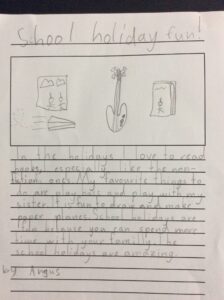 School holiday fun!
In the holidays I love to read
books, especially I like the non-
fiction ones. My favourite things to
do are play and play with my
sister. It is fun to draw and make
paper planes. School holidays are
fun because you can spend more
time with your family. The
school holidays are amazing.
by Angus